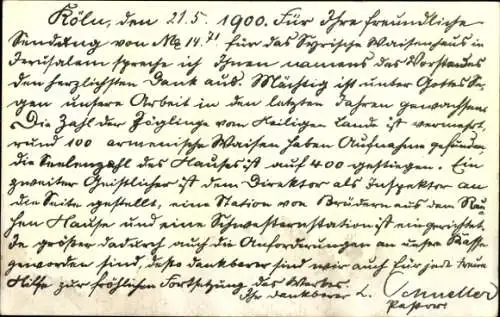 Köln, den 21.5. 1900. Für Ihre freundliche
Sendung von Mk 14.71 für das Syrische Waisenhaus in
Jerusalem spreche ich Ihnen namens des Vorstandes
den herzlichsten Dank aus. Mächtig ist unter Gottes Se-
gen unsere Arbeit in den letzten Jahren gewachsen.
Die Zahl der Zöglinge vom Heiligen Lande ist vermehrt,
rund 100 armenische Waisen haben Aufnahme gefunden,
die Seelenzahl des Hauses ist auf 400 gestiegen. Ein
zweiter Geistlicher ist dem Direktor als Inspektor an
die Seite gestellt, eine Station von Brüdern aus dem Rau-
hen Hause und eine Schwesternstation ist eingerichtet.
Je größer dadurch auch die Anforderungen an unsere Kasse
geworden sind, desto dankbarer sind wir auch für jede treue
Hilfe zur fröhlichen Fortsetzung des Werkes.
Ihr dankbarer L. Schneller
Pastor.